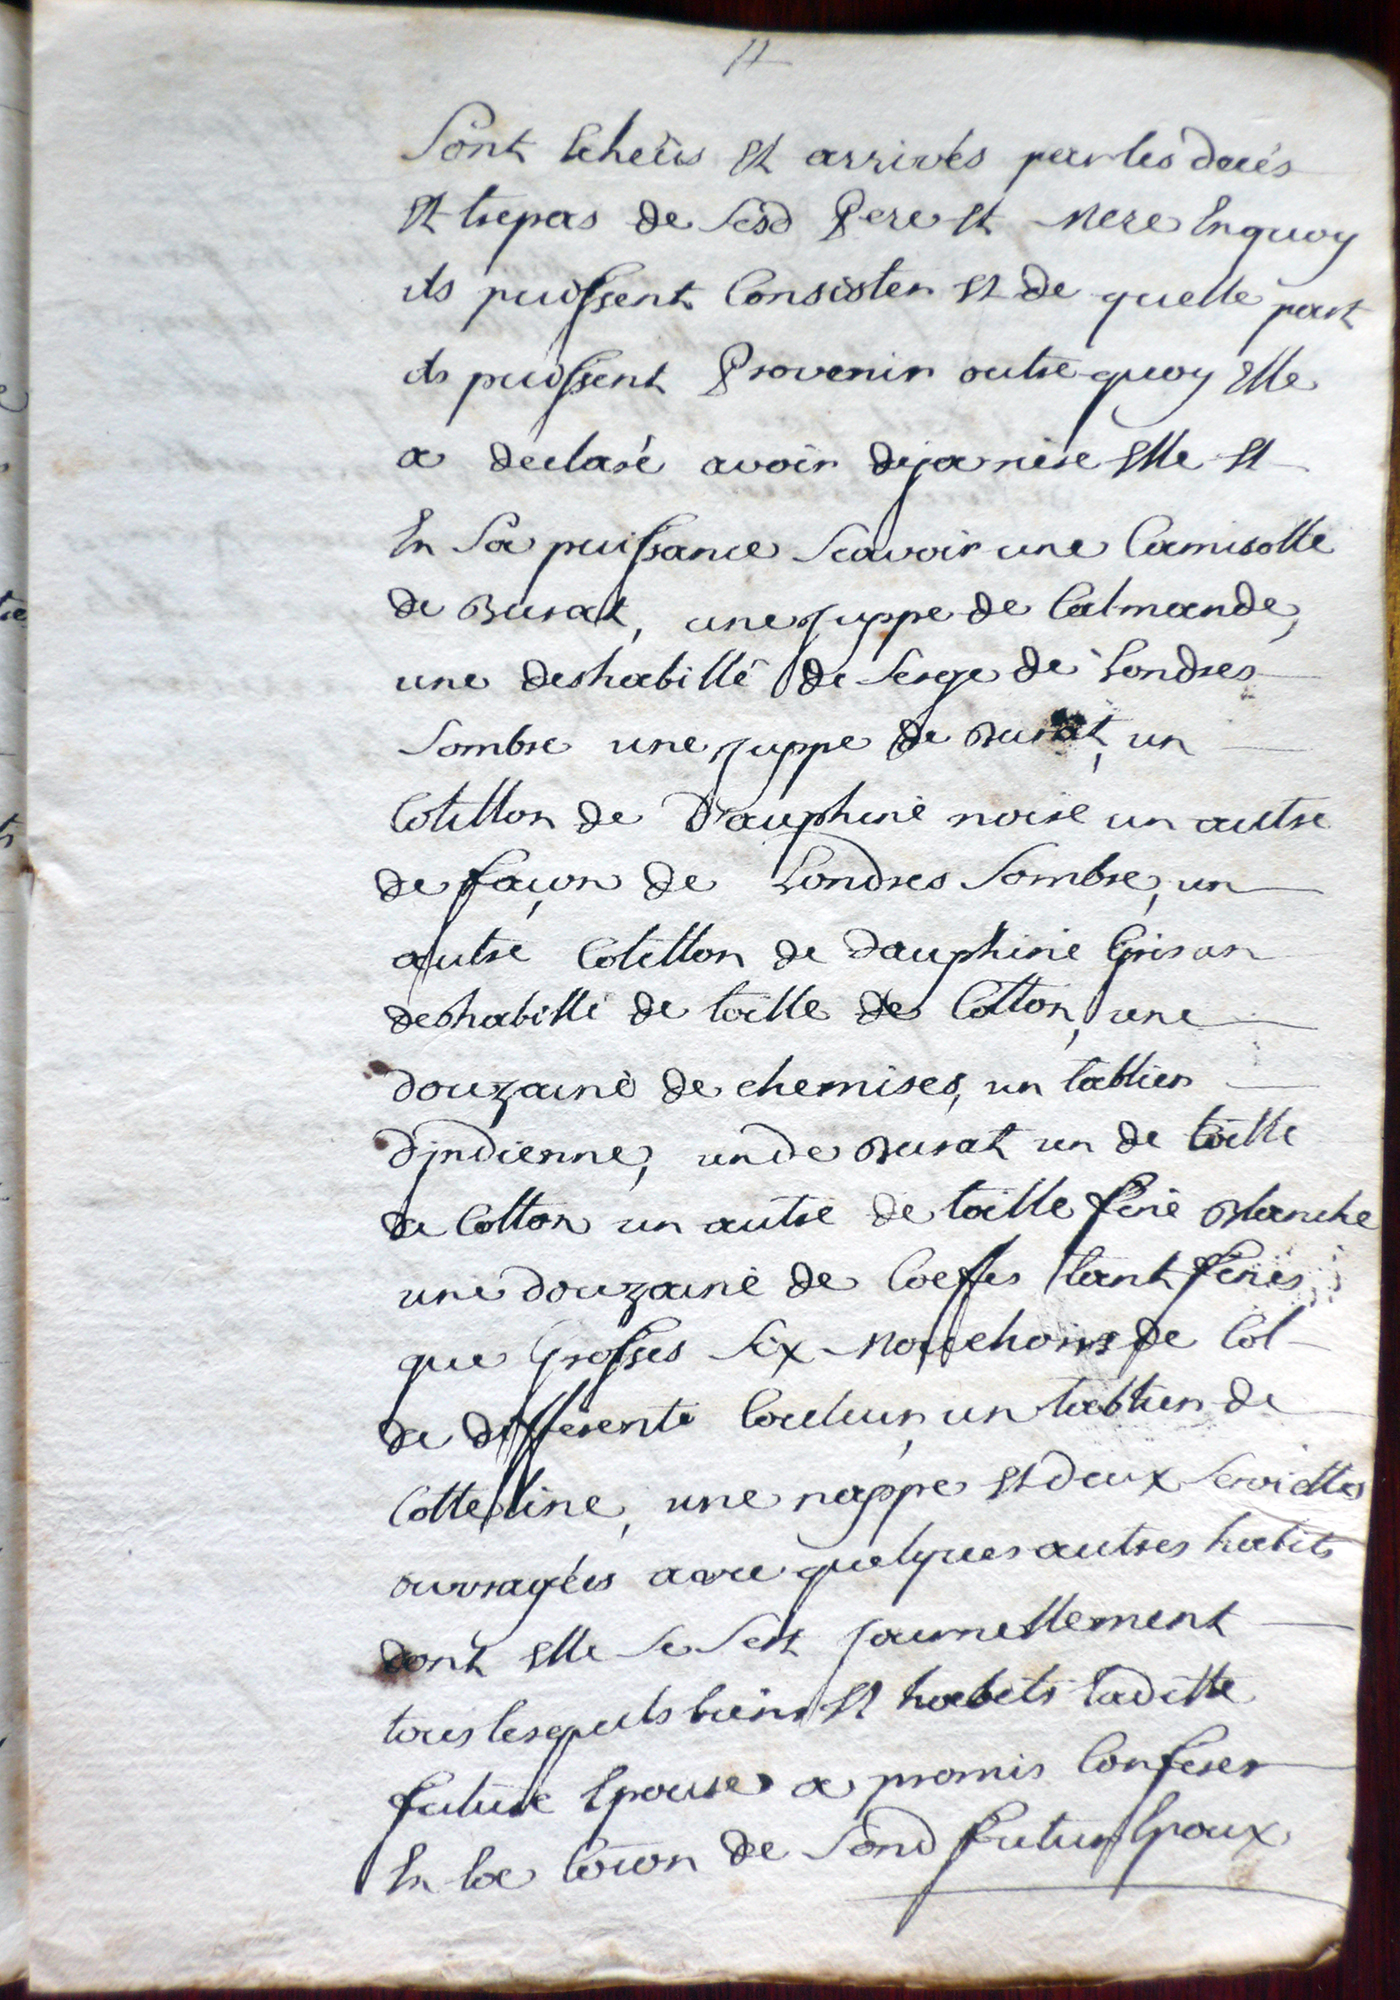 Sont Echeus Et arrivés par les deces
Et trepas de sesd Pere Et Mere Enquoy
ils puissent Consister Et de quelle part
ils puissent Provenir outre quoy Elle
a declaré avoir Elle Et
En Sa puissance Scavoir une Camisolle
de Burat, une juppe de Calmande,
une deshabillé de Serge de Londres
Sombre une juppe de Burat, un
Cotillon de Dauphine noire un autre
de façon de Londres Sombre, un
autre Cotillon de dauphine Gris un
deshabillé de toille de Cotton, une
douzaine de chemises, un tablier
d'jndienne, un de Burat un de toille
de Cotton un autre de toille fine Blanche
une douzaine de Coeffes tant fines
que Grosses Six Mouchoirs de Col
de differente Couleur, un tablier de
Cotteline, une nappe Et deux Serviettes
ouvragées avec quelques autres habits
dont Elle se sert journellement
tous lesquels biens Et habits laditte
future Epouse a promis Conferer
En la de Sond futur Epoux